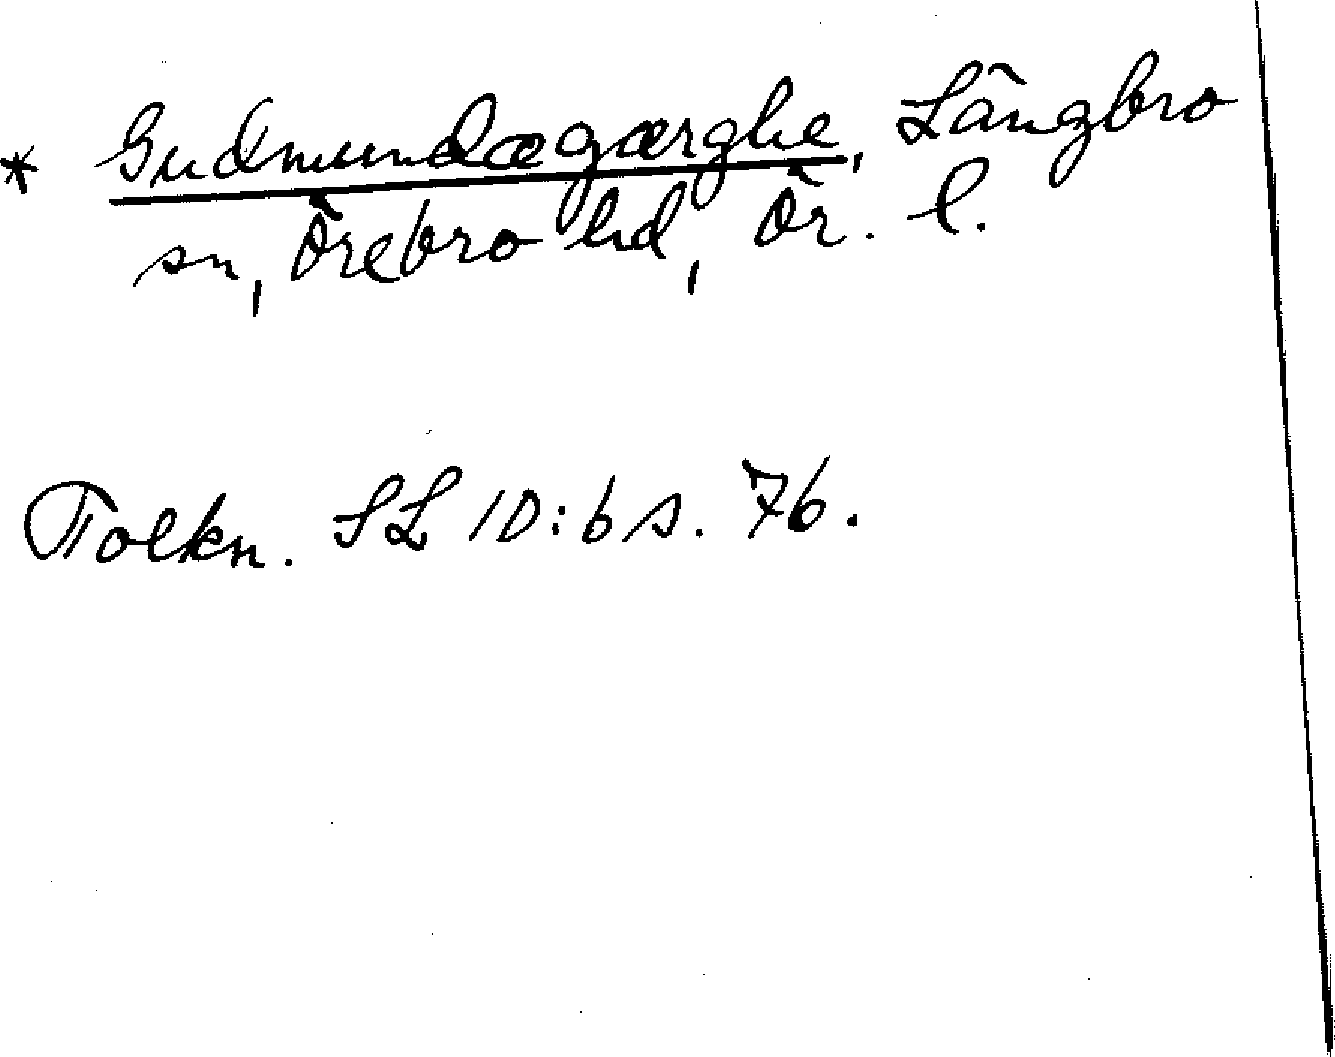 * Gudmundægærghe, Långbro
sn, Örebro hd, Ör. l.
Tolkn. SL 10:6 s. 76.